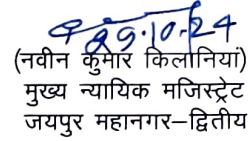 29.10.24
(नवीन कुमार किलानियां)
मुख्य न्यायिक मजिस्ट्रेट
जयपुर महानगर–द्वितीय